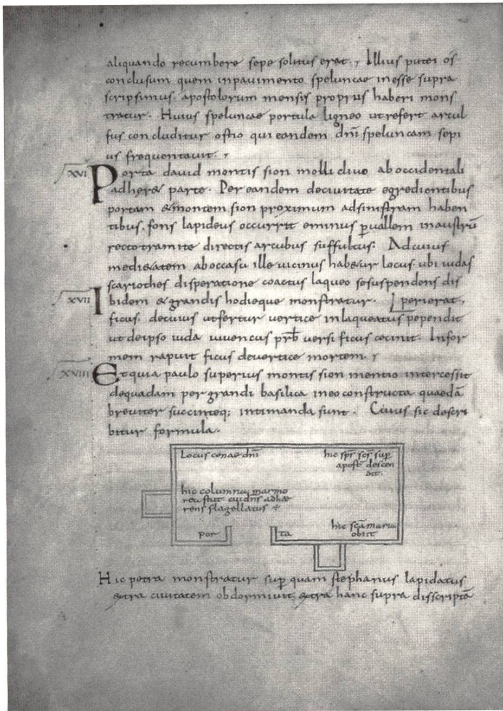 aliquando recumbere sepe solitus erat., Illius putei os
conclusum quem inpavimento speluncae inesse supra
scripsimus. apostolorum mensis proprius haberi mons
tratur. Huius speluncae portula ligneo ut refert arcul
fus concluditur ostio qui eandem dni speluncam sepi
us frequentavit.,
XVI Porta david montis sion molli clivo ab occidentali
adheret parte. Per eandem de civitate egredientibus
portam & montem sion proximum ad sinistram haben
tibus, fons lapideus occurrit eminus p vallem in austrū
recto tramite directis arcubus suffultus. Ad cuius
medietatem ab occasu ille vicinus habetur locus ubi iudas
scariothes disperatione coactus laqueo se suspendens dis
XVII bidem & grandis hodieque monstratur. I perierat,
ficus de cuius ut fertur vertice inlaqueatus pependit
ut de ipso iuda iuvencus prb versificus cecinit. Infor
mem rapuit ficus de vertice mortem,
XVIII Et quia paulo superius montis sion mentio intercessit
de quadam pergrandi basilica in eo constructa quaedā
breviter succincteq; intimanda sunt. Cuius sic descri
bitur formula.
Locus cenae dni
hic sps scs sup
apost descen
dit
hic columna marmo
rea stetit cui dns adhae
rens flagellatus ÷
por ta
hic scā maria
obiit
Hic petra monstratur sup quam stephanus lapidatus
extra civitatem obdormivit, extra hanc supra disscriptā